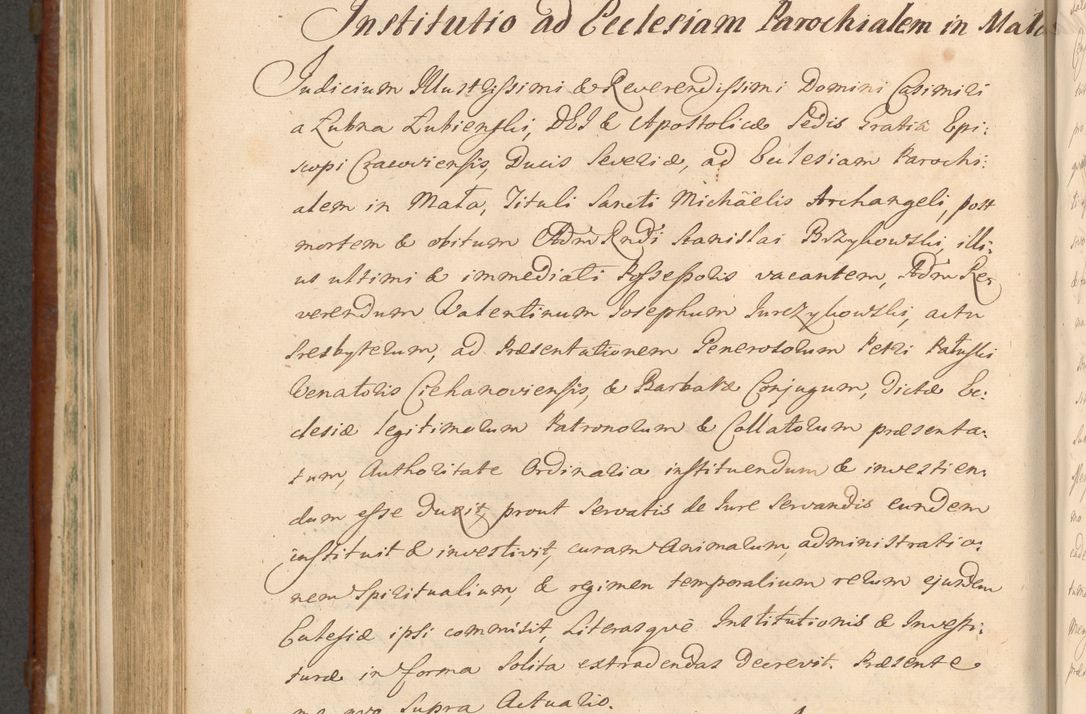 Institutio ad Ecclesiam Parochialem in Mała
Judicium Illustrissimi & Reverendissimi Domini Casimiri
a Łubna Łubienski, DEI & Apostolicæ Sedis Gratiâ Epi:
scopi Cracoviensis, Ducis Severiæ, ad Ecclesiam Parochi:
alem in Mała, Tituli Sancti Michäelis Archangeli, post
mortem & obitum Adm Rndi Stanislai Brzykowski, illi:
us ultimi & immediati Possessoris vacantem, Adm Re:
verendum Valentinum Josephum Jurczykowski, actu
Presbyterum, ad Præsentationem Generosorum Petri
Venatoris Ciehanoviensis, & Barbaræ Conjugum, dictæ Ec:
clesiæ legitimorum Patronorum & Collatorum præsenta:
tum, Authoritate Ordinaria instituendum & investien:
dum esse duxit, prout servatis de Jure servandis eundem
instituit & investivit, curam Animarum, administratio:
nem Spiritualium, & regimen temporalium rerum ejusdem
Ecclesiæ ipsi commisit, Literasquè Institutionis & Investi:
turæ in forma solita extradendas Decrevit. Præsente
me quo supra Actuario.